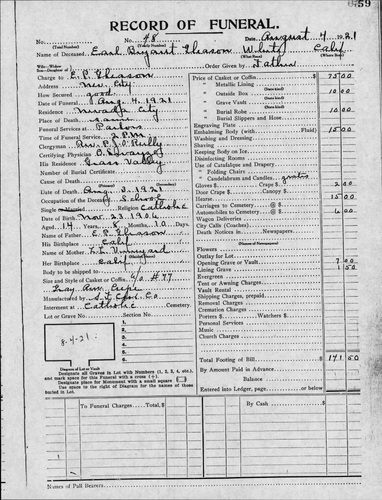 59
RECORD OF FUNERAL.
No. #8 Date, August 4, 1921
(Total Number) (Yearly Number)
Name of Deceased Earl Bryant Gleason White Calif
(What Race) (Where Born)
Son—Daughter of Order Given by Father
Charge to E.P. Gleason
Address Nev. City
How Secured good
Date of Funeral Aug. 4, 1921
Residence Nevada City
Place of Death same
Funeral Services at Parlors
Time of Funeral Service 2 P.M.
Clergyman Rev. P. J. O'Reilly
Certifying Physician
His Residence Grass Valley
Number of Burial Certificate
Cause of Death
Date of Death Aug. 3, 1921
Occupation of the Deceased School
Single Religion Catholic
Date of Birth Nov. 23, 1906
Aged 14 Years 8 Months 10 Days
Name of Father E.P. Gleason
His Birthplace Calif
Name of Mother
Her Birthplace Calif
Body to be shipped to
Size and Style of Casket or Coffin 4/0 #77
Gray
Manufactured by Co
Interment at Catholic Cemetery.
Lot or Grave No. Section No.
8-4-21-
1.
2.
3.
4.
5.
6.
Diagram of Lot or Vault
Designate all Graves in Lot with Numbers (1, 2, 3, 4, etc.),
and mark space for this Funeral with a cross (+).
Designate place for Monument with a small square
Use space to the right of Diagram for the names of those
buried in Lot.
Price of Casket or Coffin $ 75 00
" Metallic Lining
(State kind)
" Outside Box 10 00
(State kind)
" Grave Vault
(State kind)
" Burial Robe 10 00
(State kind)
" Burial Slippers and Hose
Engraving Plate
Embalming Body (with Fluid) 15 00
Washing and Dressing
Shaving
Keeping Body on Ice
Disinfecting Rooms
Use of Catafalque and Drapery
" Folding Chairs
" Candelabrum and Candles gratis
Gloves $ Crape $ 2 00
Door Crape $ Canopy $
Hearse 15 00
Carriages to Cemetery @ $
Automobiles to Cemetery @ $ 6 00
Wagon Deliveries
City Calls (Coaches)
Death Notices in Newspapers
(Names of Newspapers)
Flowers
Outlay for Lot
Opening Grave or Vault 7 00
Lining Grave 1 50
Evergreen
Tent or Awning Charges
Vault Rental
Shipping Charges, prepaid
Removal Charges
Cremation Charges
" Porters $ Watchers $
" Personal Services
" Music
Church Charges
Total Footing of Bill $ 141 50
By Amount Paid in Advance
Balance
Entered into Ledger, page or below.
To Funeral Charges Total $
By Cash $
Names of Pall Bearers